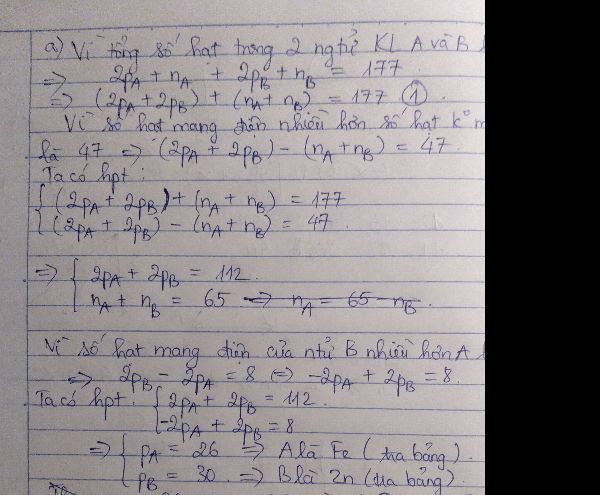 a) Vì tổng số hạt trong 2 ngtử KL A và B
=> 2pA + nA + 2pB + nB = 177
=> (2pA + 2pB) + (nA + nB) = 177 (1)
Vì số hạt mang điện nhiều hơn số hạt k° m
là 47 => (2pA + 2pB) - (nA + nB) = 47
Ta có hpt:
(2pA + 2pB) + (nA + nB) = 177
(2pA + 2pB) - (nA + nB) = 47.
=> { 2pA + 2pB = 112.
nA + nB = 65 => nA = 65 - nB.
Vì số hạt mang điện của ntử B nhiều hơn A
=> 2pB - 2pA = 8 (=) -2pA + 2pB = 8.
Ta có hpt: { 2pA + 2pB = 112.
-2pA + 2pB = 8
=> { pA = 26 => A là Fe (tra bảng).
pB = 30. => B là Zn (tra bảng)